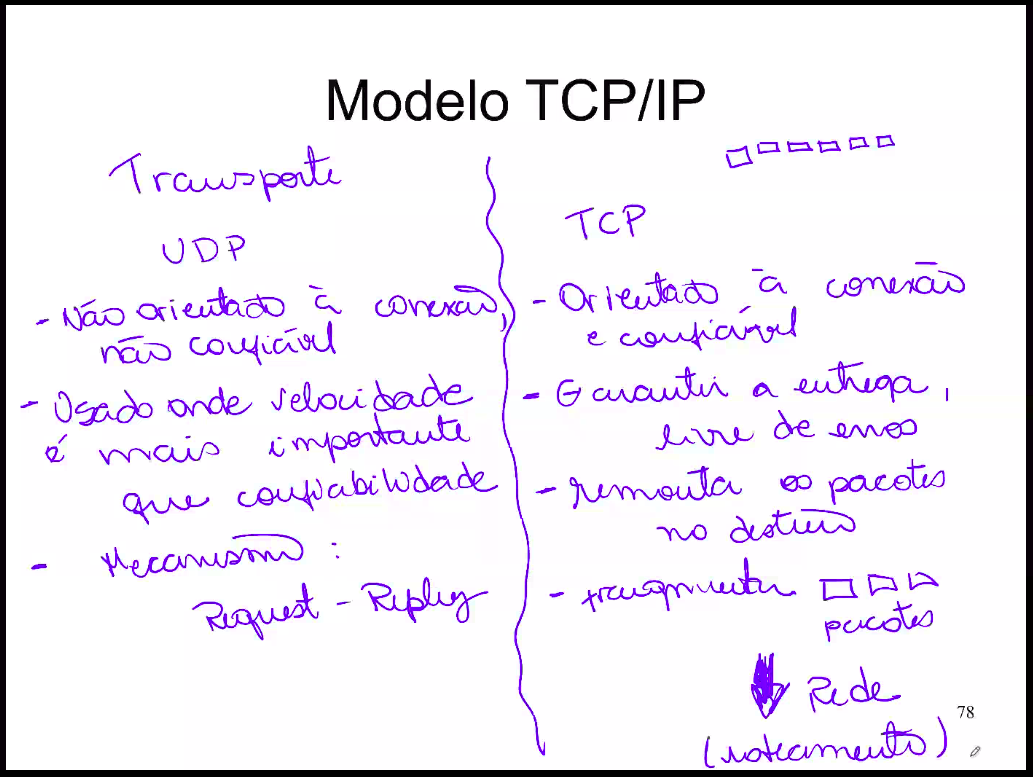 Modelo TCP/IP
Transporte
UDP
- Não orientado à conexão,
não confiável
- Usado onde velocidade
é mais importante
que confiabilidade
- Mecanismo:
Request - Reply
TCP
- Orientado à conexão
e confiável
- Garantir a entrega,
livre de erros
- remonta os pacotes
no destino
- fragmentar
pacotes
Rede
(roteamento)
78